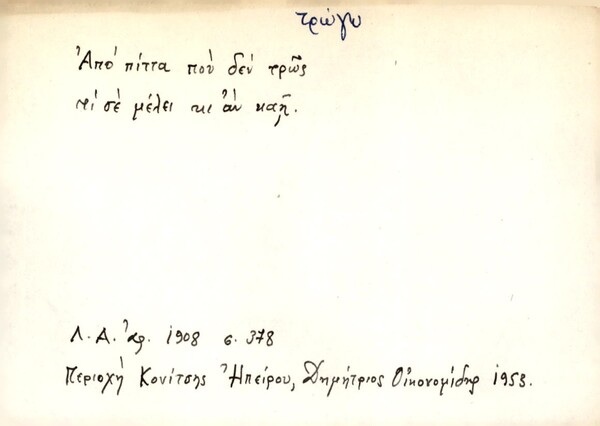 τρώγω
Ἀπό πίττα πού δέν τρῶς
τί σέ μέλει κι ἄν καῇ.
Λ. Α. ἀρ. 1908 σ. 378
Περιοχή Κονίτσης Ἠπείρου, Δημήτριος Οἰκονομίδης 1953.